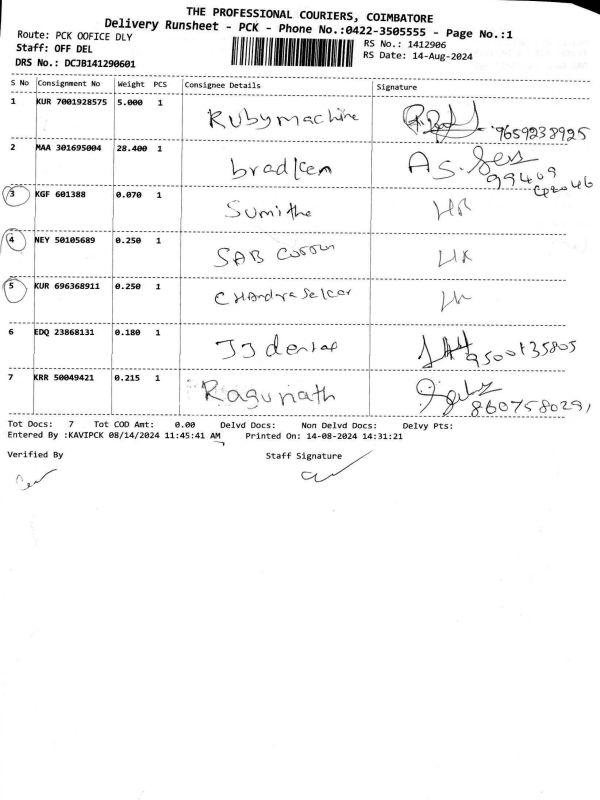 THE PROFESSIONAL COURIERS, COIMBATORE
Delivery Runsheet - PCK - Phone No.:0422-3505555 - Page No.:1
Route: PCK OOFICE DLY
RS No.: 1412906
Staff: OFF DEL
RS Date: 14-Aug-2024
DRS No.: DCJB141290601
S No Consignment No Weight PCS Consignee Details Signature
1 KUR 7001928575 5.000 1 Rubymachine 9659238925
2 MAA 301695004 28.400 1 bradken
3 KGF 601388 0.070 1 Sumithe
4 NEY 50105689 0.250 1 SAB
5 KUR 696368911 0.250 1 CHAndraSelcar
6 EDQ 23868131 0.180 1 JJ dental 9500135805
7 KRR 50049421 0.215 1 Ragunath 8607580291
Tot Docs: 7 Tot COD Amt: 0.00 Delvd Docs: Non Delvd Docs: Delvy Pts:
Entered By :KAVIPCK 08/14/2024 11:45:41 AM Printed On: 14-08-2024 14:31:21
Verified By Staff Signature